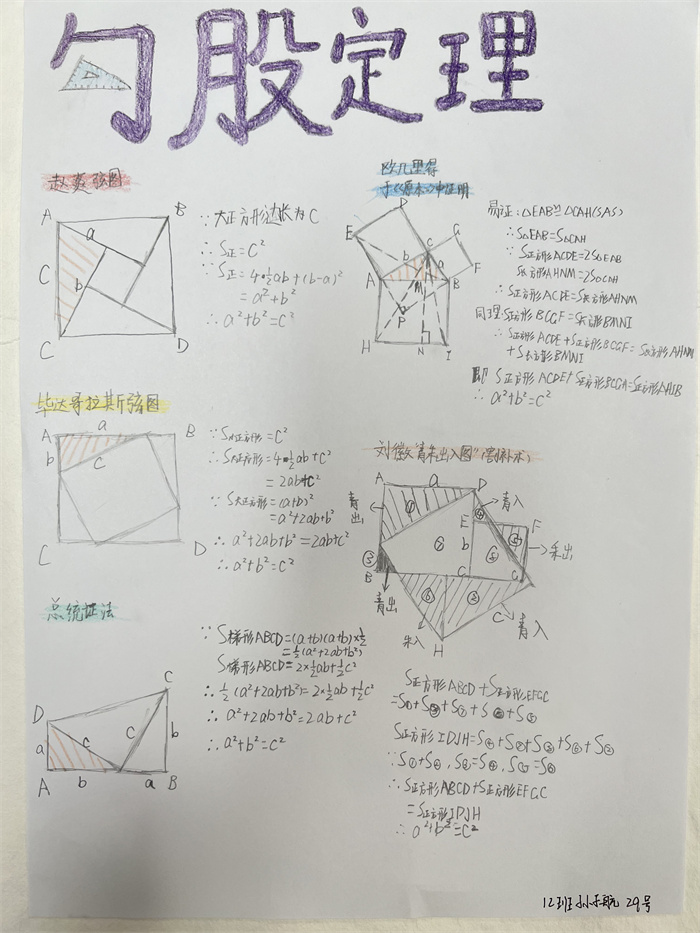 勾股定理
赵爽弦图
A
B
C
D
a
b
C
∵大正方形边长为C
∴S正=C²
∵S正=4·½ab+(b-a)²
=a²+b²
∴a²+b²=C²
欧几里得
于《原本》中证明
D
E
C
G
F
b
a
A
M
B
P
H
N
I
易证:△EAB≌△CAH(SAS)
∴S△EAB=S△CAH
∵S正方形ACDE=2S△EAB
S长方形AHNM=2S△CAH
∴S正方形ACDE=S长方形AHNM
同理:S正方形BCGF=S长方形BMNI
∴S正方形ACDE+S正方形BCGF=S长方形AHNM
+S长方形BMNI
即S正方形ACDE+S正方形BCGA=S正方形AHIB
∴a²+b²=c²
毕达哥拉斯弦图
A
a
B
b
c
C
D
∵S小正方形=C²
∴S大正方形=4·½ab+C²
=2ab+C²
∵S大正方形=(a+b)²
=a²+2ab+b²
∴a²+2ab+b²=2ab+c²
∴a²+b²=C²
刘徽"青朱出入图"(割补术)
A
a
D
青出
①
青入
E
F
②
b
朱出
③
B
C
青出
朱入
⑥
C
青入
H
总统证法
D
C
a
c
c
b
A
b
a
B
∵S梯形ABCD=(a+b)(a+b)×½
=½(a²+2ab+b²)
S梯形ABCD=2×½ab+½c²
∴½(a²+2ab+b²)=2×½ab+½c²
∴a²+2ab+b²=2ab+c²
∴a²+b²=C²
S正方形ABCD+S正方形EFGC
S正方形IDJH=
∴S正方形ABCD+S正方形EFGC
=S正方形IDJH
∴a²+b²=C²
12班 29号